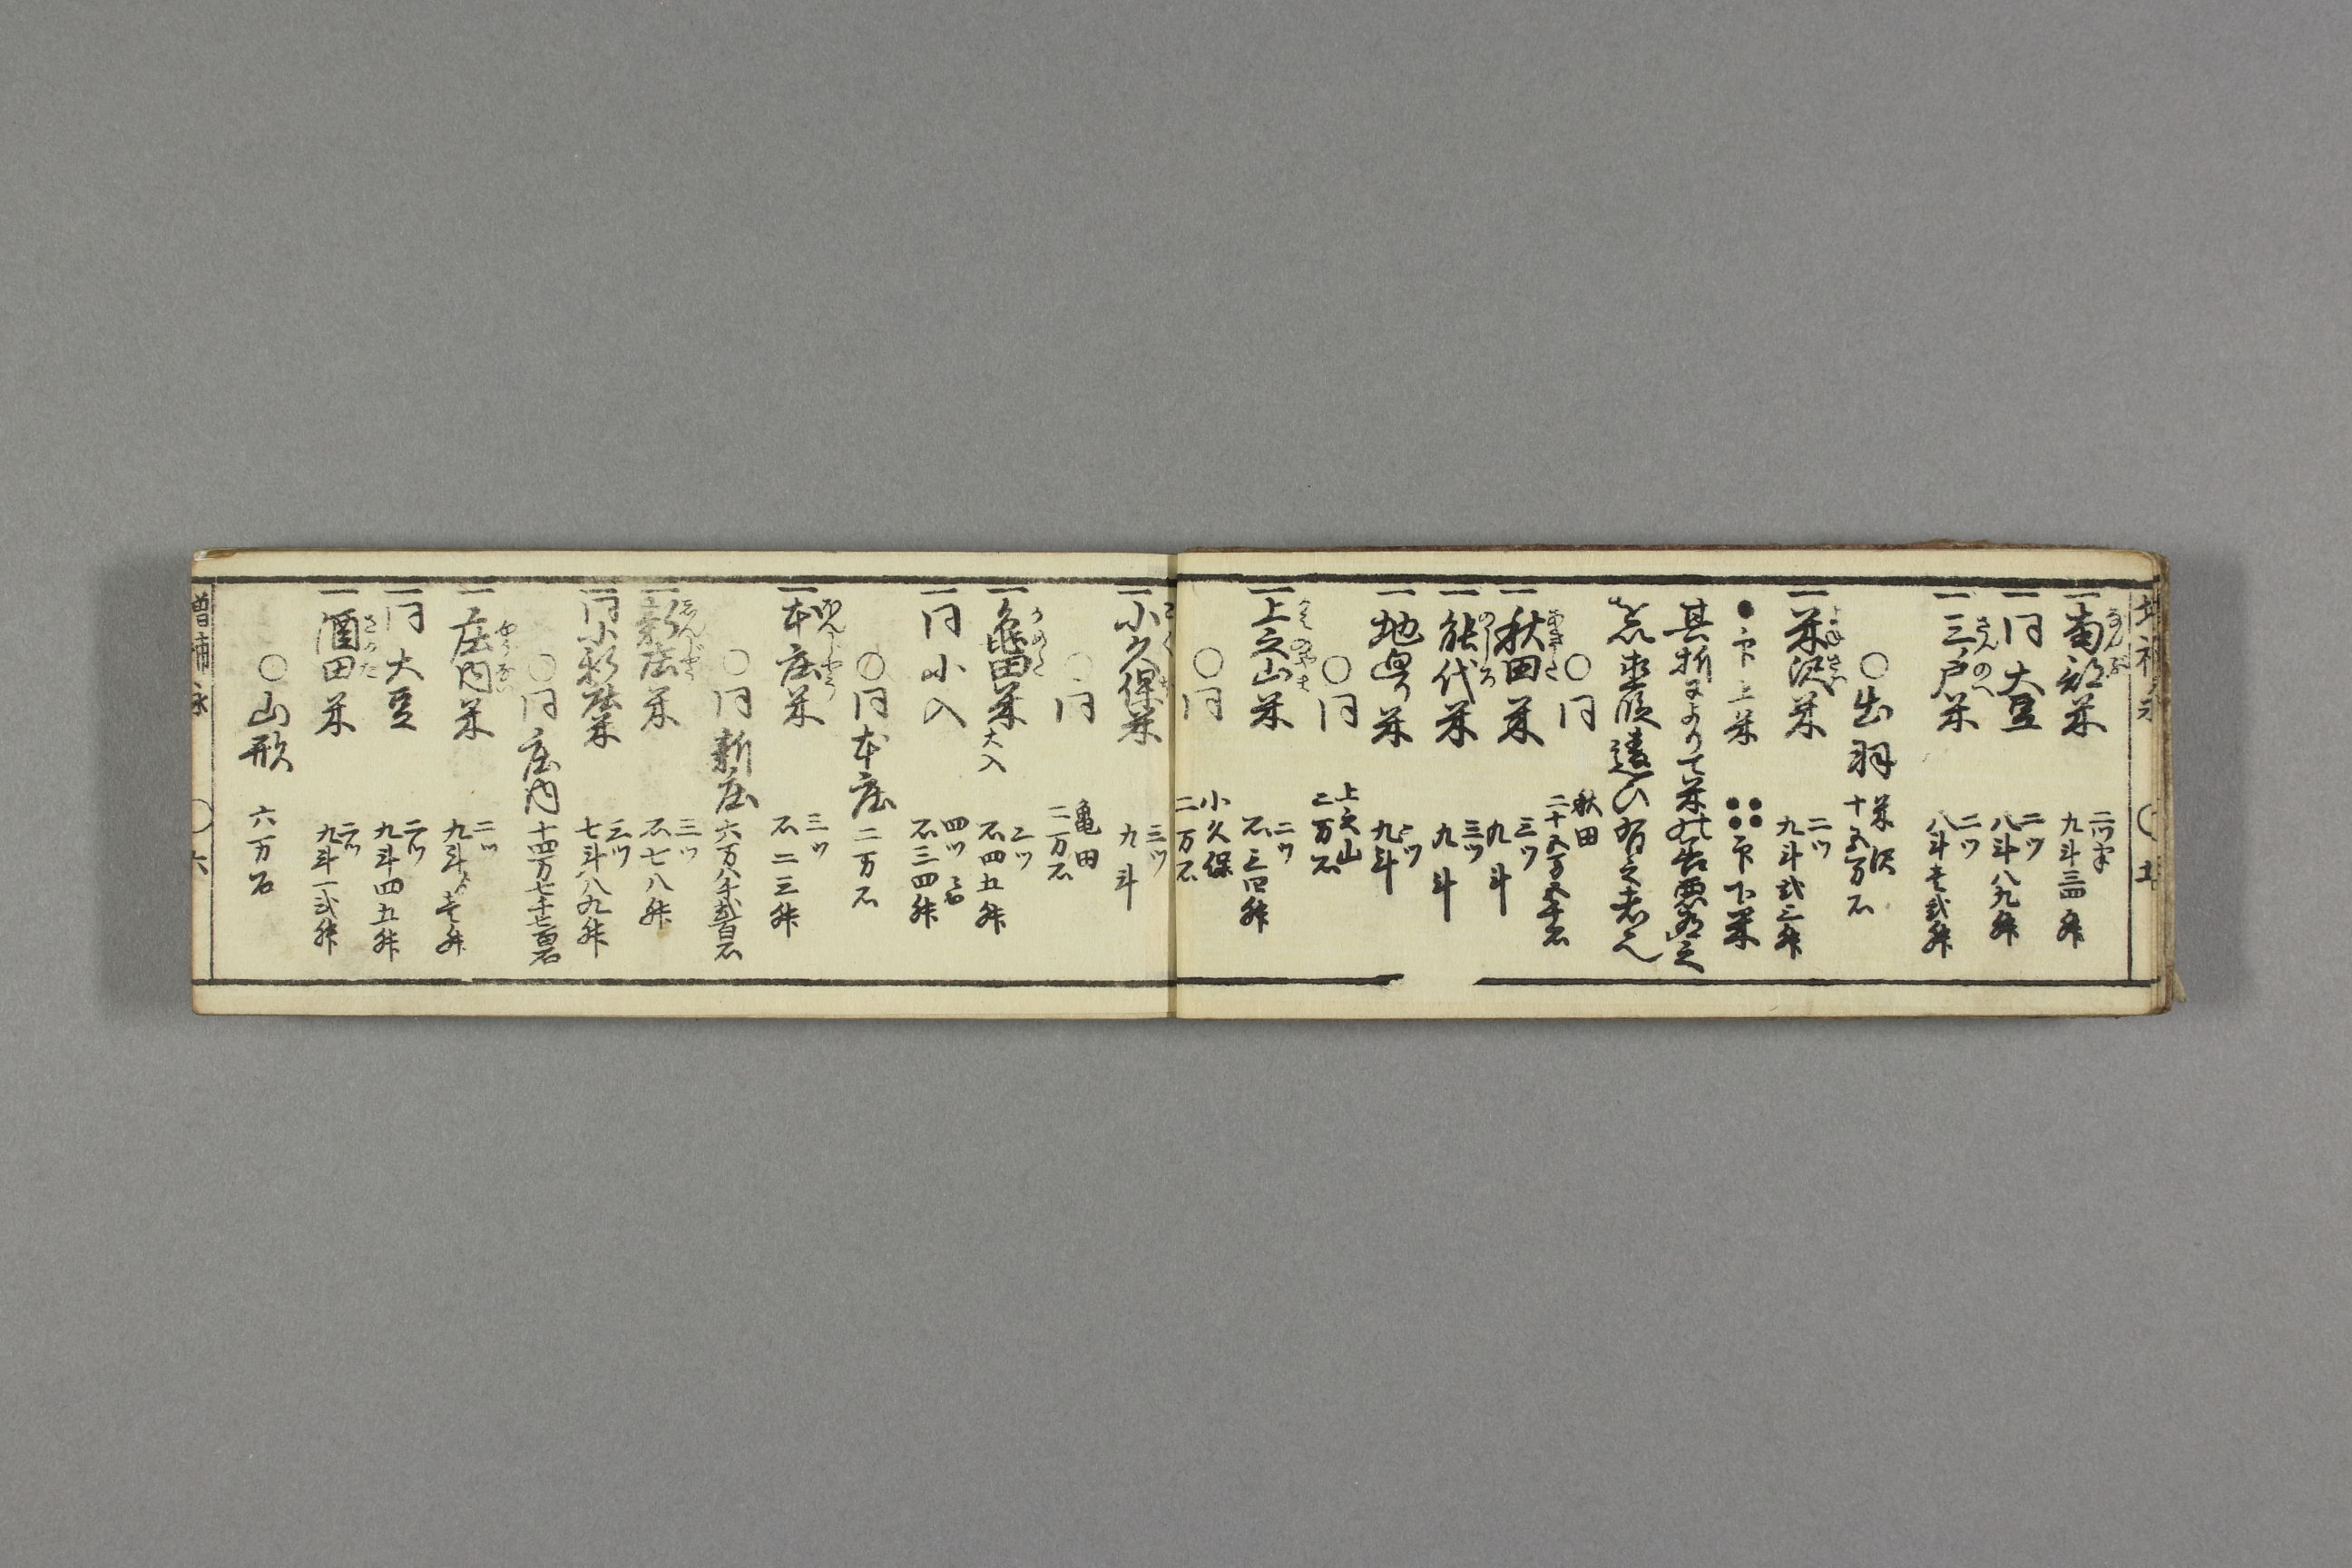 一南部米 二ツ半 九斗三四舛
一同大豆 二ツ 八斗八九舛
一三戸米 さんのへ 二ツ 八斗壱弐舛
○出羽 米沢 十五万石
一米沢米 よねざは 二ツ 九斗弐三舛
●印上米 印下米
其折によりて米の善悪有之
一秋田米 あきた 三ツ 九斗
○同 秋田 二十五万五千石
一能代米 のしろ 三ツ 九斗
一地廻り米 三ツ 九斗
○同 上之山 三万石
一上之山米 かみのやま 二ツ 石三四舛
○同 小久保 二万石
一小久保米 こくぼ 三ツ 九斗
○同 亀田 二万石
一亀田米大入 かめだ 三ツ 石四五舛
一同小入 四ツ 石三四舛
○同本庄 二万石
一本庄米 ほんじやう 三ツ 石二三舛
○同新庄 六万八千弐百石
一新庄米 しんじやう 三ツ 石七八舛
一同小新庄米 三ツ 七斗八九舛
○同庄内 十四万七千七百石
一庄内米 二ツ 九斗ゟ壱舛
一同大豆 二ツ 九斗四五舛
一酒田米 さかた 二ツ 九斗一弐舛
○山形 六万石
増補永 ○六